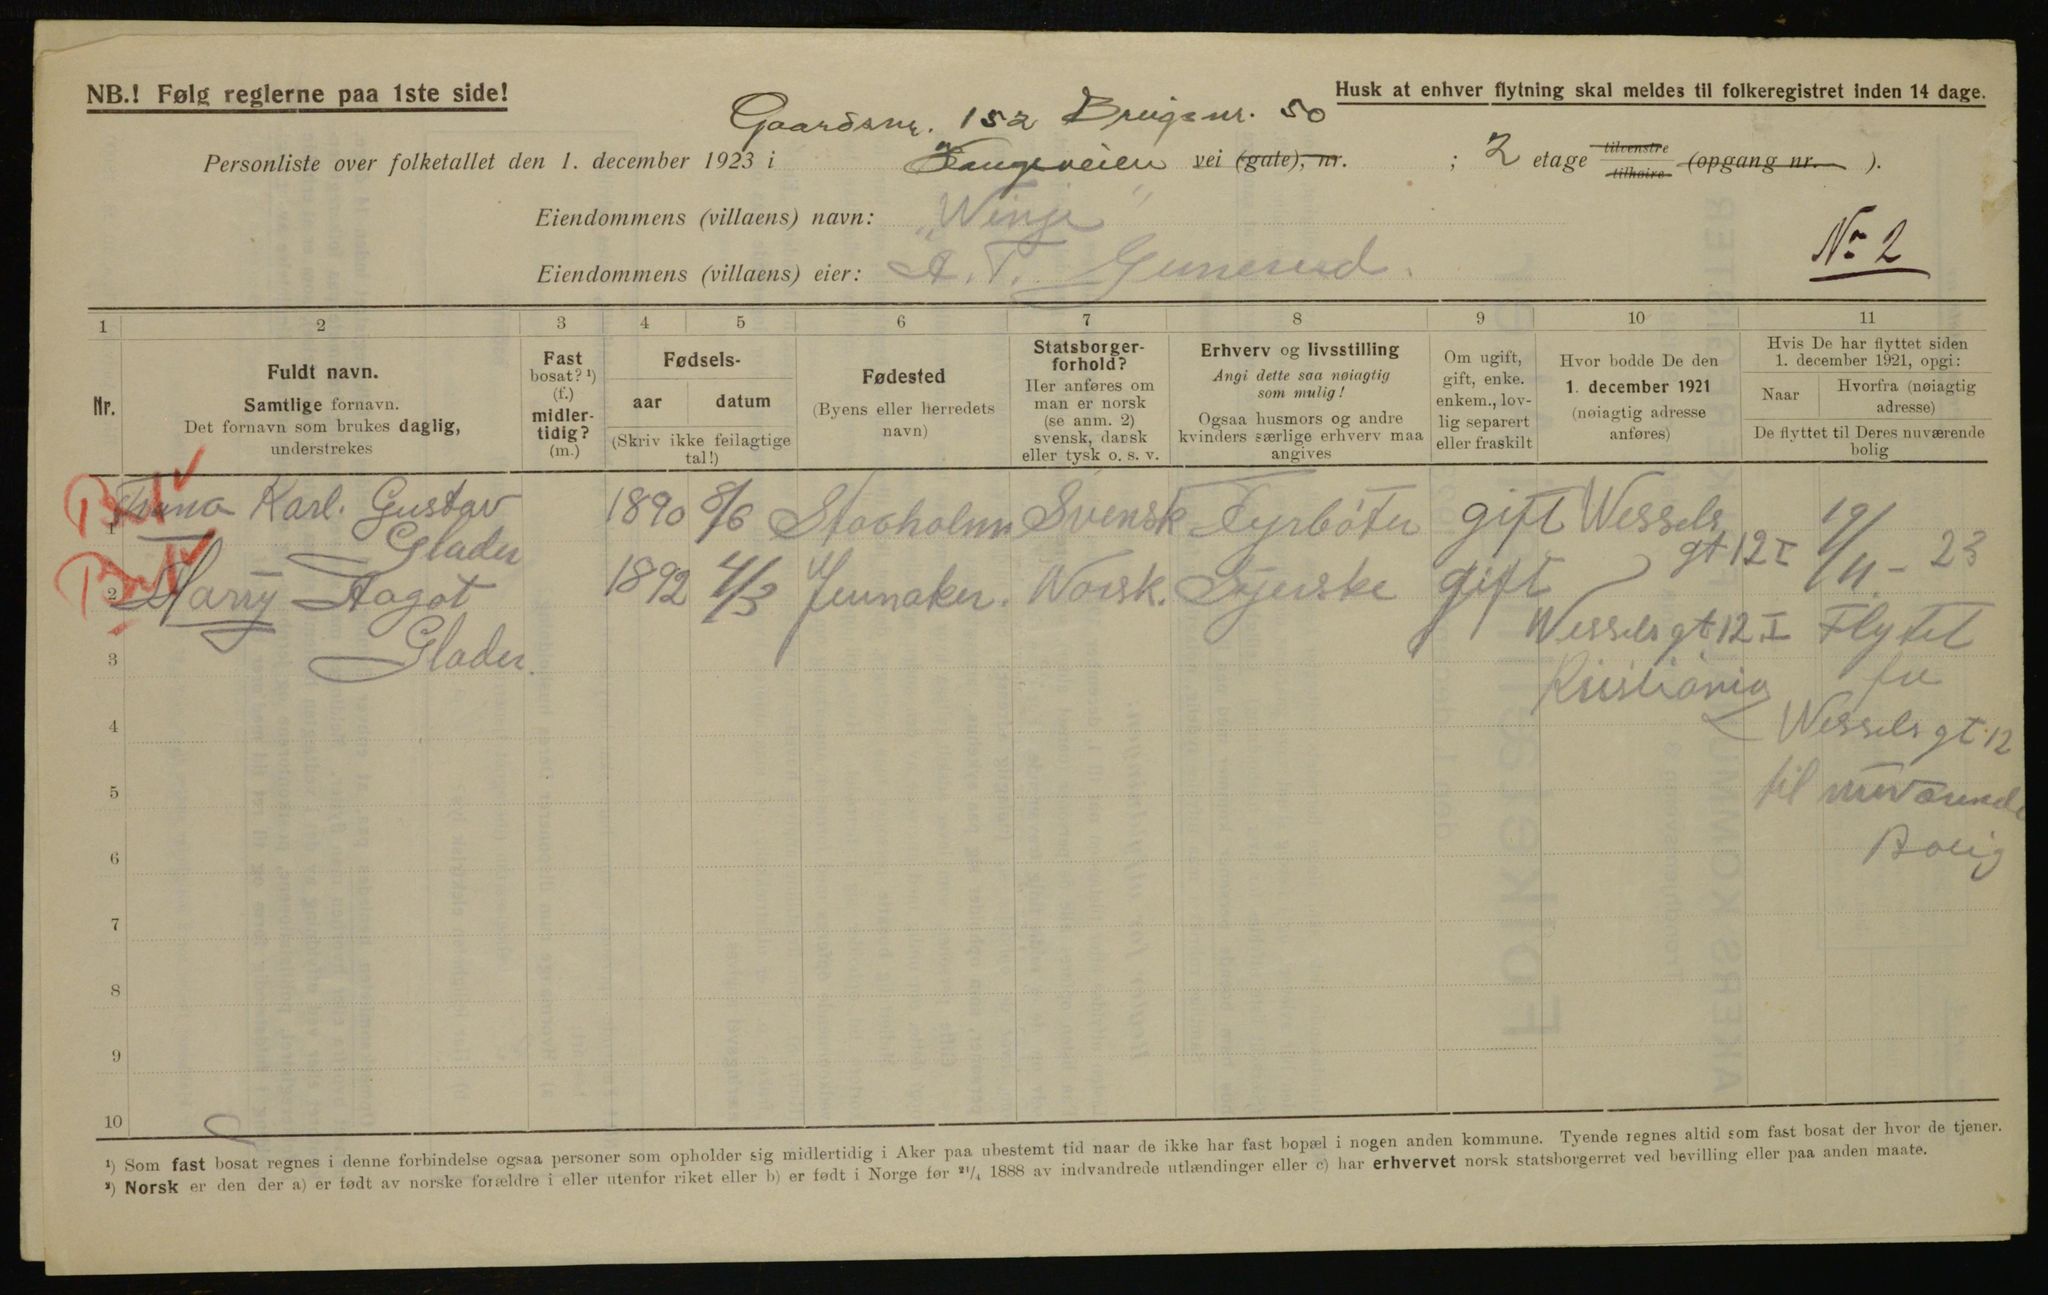 NB.! Følg reglerne paa 1ste side!
Husk at enhver flytning skal meldes til folkeregistret inden 14 dage.
Gaardsnr. 152 Brugsnr. 50
Personliste over folketallet den 1. december 1923 i vei (gate), nr. ; 2 etage tilvenstre tilhøire (opgang nr. ).
Eiendommens (villaens) navn: "Winje"
Eiendommens (villaens) eier: A. T.
No 2
1 2 3 4 5 6 7 8 9 10 11
Nr.
Fuldt navn.
Samtlige fornavn.
Det fornavn som brukes daglig,
understrekes
Fast
bosat? ¹)
(f.)
midler-
tidig?
(m.)
Fødsels-
aar datum
(Skriv ikke feilagtige
tal!)
Fødested
(Byens eller herredets
navn)
Statsborger-
forhold?
Her anføres om
man er norsk
(se anm. 2)
svensk, dansk
eller tysk o. s. v.
Erhverv og livsstilling
Angi dette saa nøiagtig
som mulig!
Ogsaa husmors og andre
kvinders særlige erhverv maa
angives
Om ugift,
gift, enke.
enkem., lov-
lig separert
eller fraskilt
Hvor bodde De den
1. december 1921
(nøiagtig adresse
anføres)
Hvis De har flyttet siden
1. december 1921, opgi:
Naar
Hvorfra (nøiagtig
adresse)
De flyttet til Deres nuværende
bolig
1 Karl. Gustav 1890 8/6 Stocholm Svensk Fyrbøter gift Wessels 19/11 - 23
Glader gt 12 I
2 Aagot 1892 4/3 Jevnaker. Norsk. Syerske gift
Glader. Wessels gt. 12 I Flyttet
3 Kristiania fra
4 Wessels gt 12
5 til nuværende
6 Bolig
7
8
9
10
¹) Som fast bosat regnes i denne forbindelse ogsaa personer som opholder sig midlertidig i Aker paa ubestemt tid naar de ikke har fast bopæl i nogen anden kommune. Tyende regnes altid som fast bosat der hvor de tjener.
²) Norsk er den der a) er født av norske forældre i eller utenfor riket eller b) er født i Norge før ²¹/₄ 1888 av indvandrede utlændinger eller c) har erhvervet norsk statsborgerret ved bevilling eller paa anden maate.